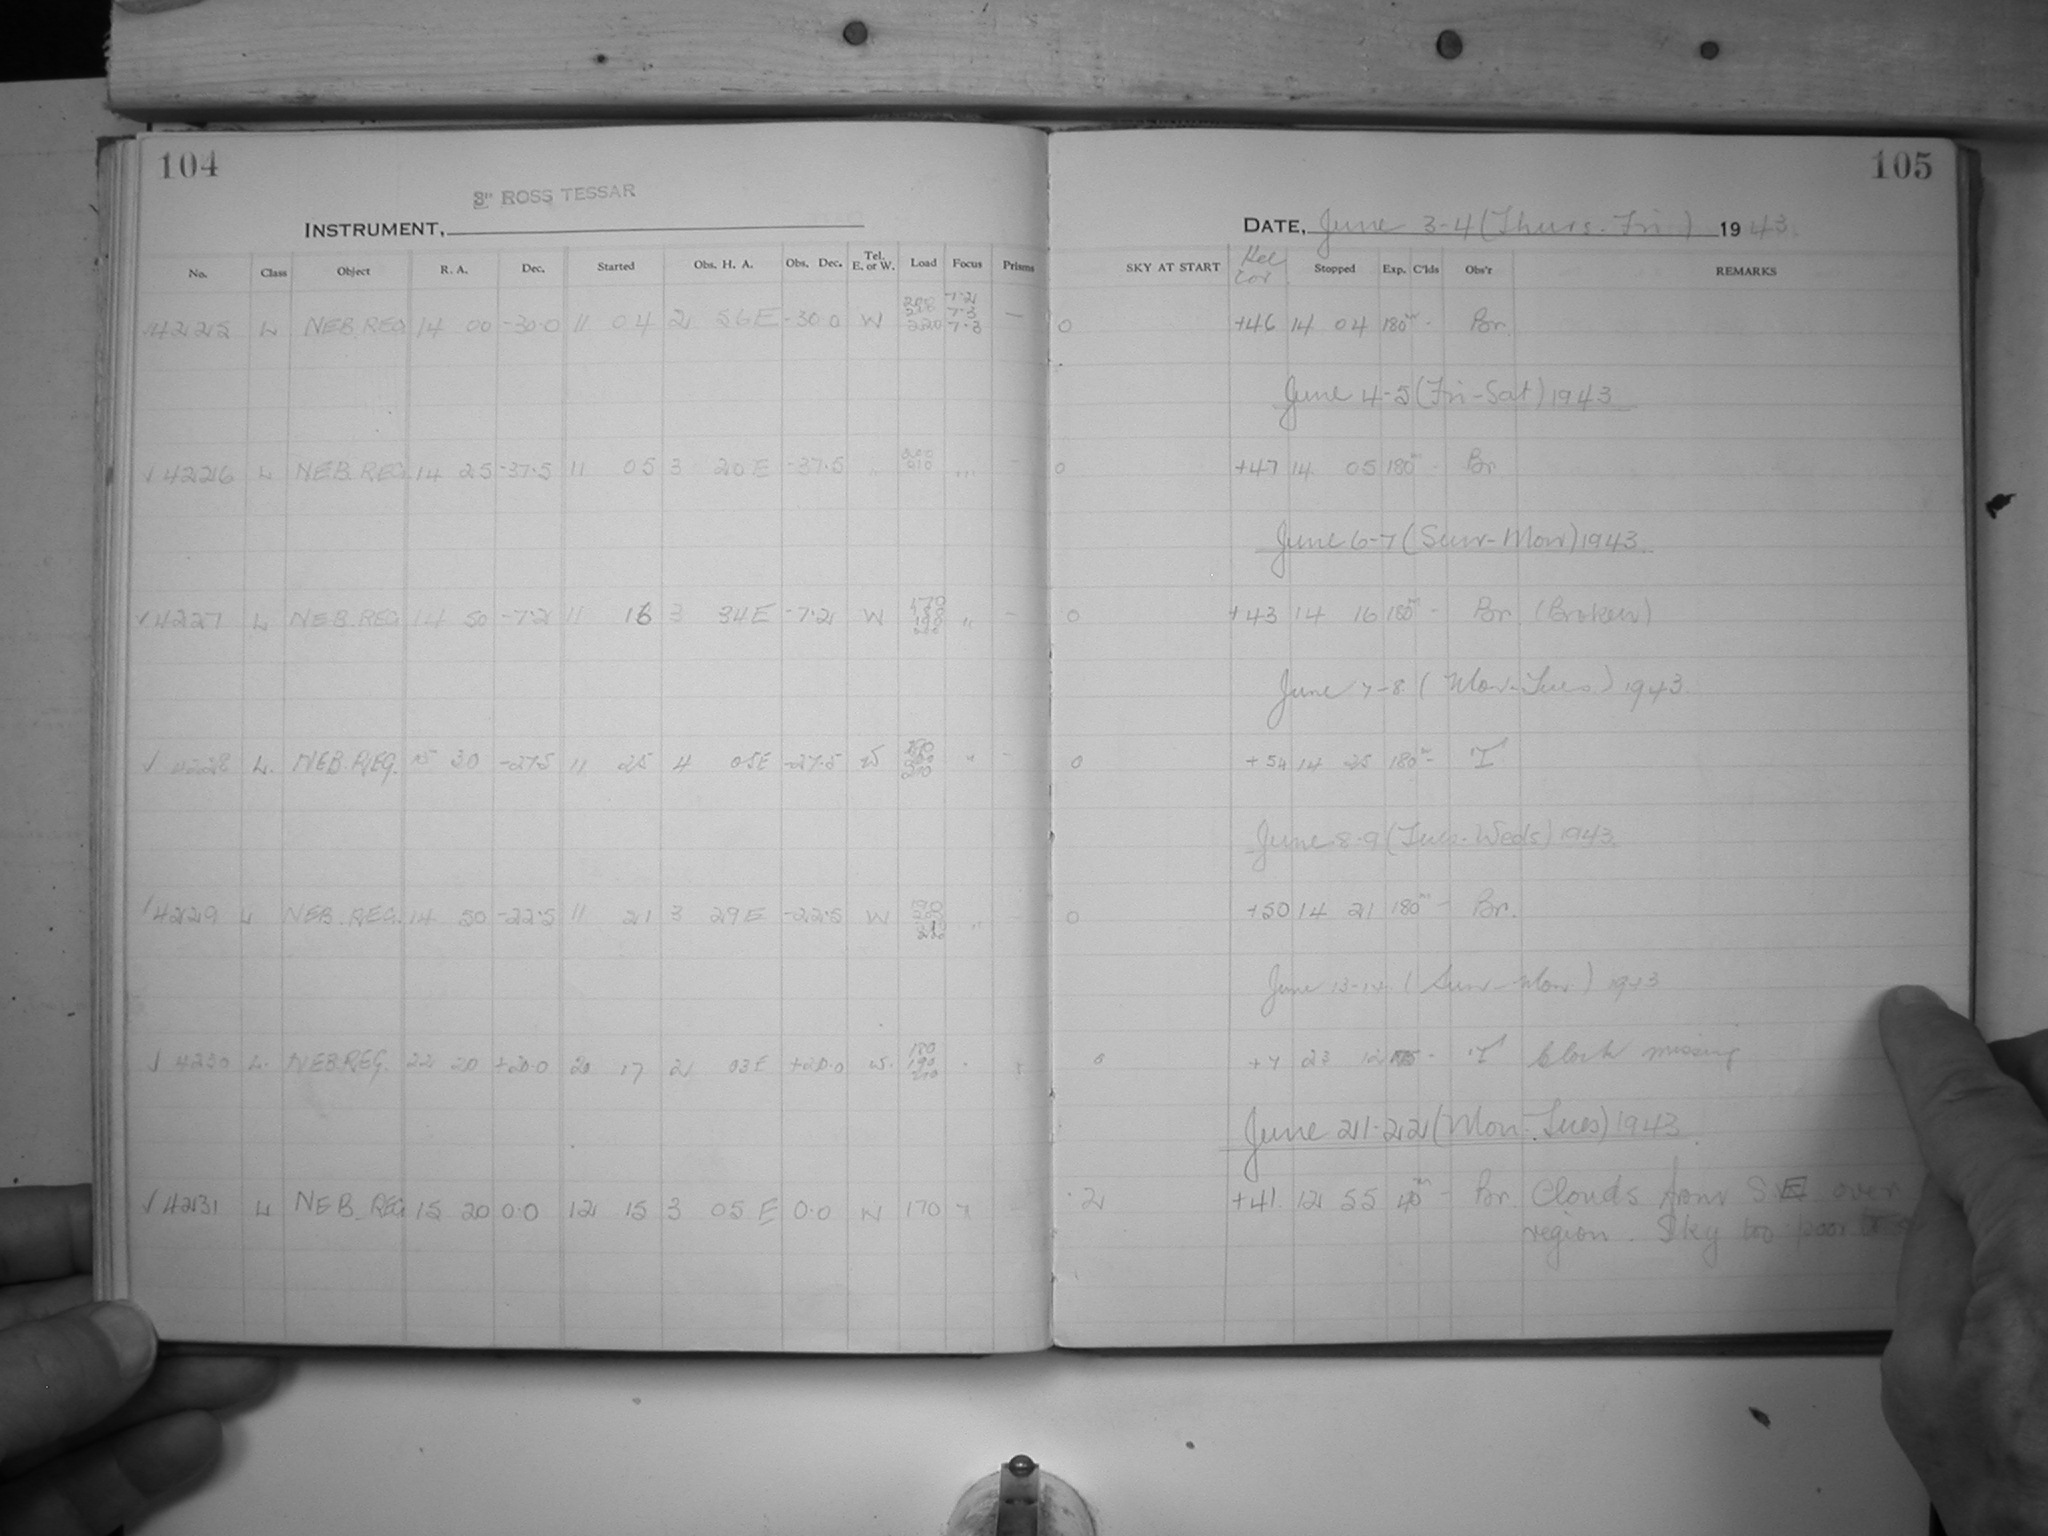 104
3" ROSS TESSAR
INSTRUMENT,
No. Class Object R. A. Dec. Started Obs. H. A. Obs. Dec. Tel. E. or W. Load Focus Prisms
4225 L NEB. REG 14 00 -30.0 11 04 2 56E -30.0 W 220 7.3 —
√ 4226 L NEB. REG. 14 25 -37.5 11 05 3 20E -37.5 " 210 " -
√ 4227 L NEB. REG 14 50 -7.2 11 16 3 34E -7.2 W 170 " -
√ 4228 L. NEB. REG. 15 30 -27.5 11 25 4 05E -27.5 W 210 " -
√ 4229 L NEB. REG. 14 50 -22.5 11 21 3 29E -22.5 W 190 " -
√ 4230 L. NEB. REG. 22 20 +20.0 20 17 2 03E +20.0 W. 180 190 210
√ 4231 L NEB. REG 15 20 0.0 12 15 3 05 E 0.0 W 170
105
DATE, June 3-4 (Thurs.-Fri.) 1943.
SKY AT START Stopped Exp. C'lds Obs'r REMARKS
0 +46 14 04 180m - Br.
June 4-5 (Fri-Sat) 1943
0 +47 14 05 180m - Br
June 6-7 (Sun-Mon) 1943
0 +43 14 16 180m - Br (Broken)
June 7-8 (Mon-Tues) 1943.
0 +54 14 25 180m -
June 8-9 (Tues-Weds) 1943.
0 +50 14 21 180m - Br.
June 13-14 (Sun-Mon) 1943
0 +7 23 12 175 - clock missing
June 21-22 (Mon-Tues) 1943
2 +41. 12 55 40m - Br. Clouds from S.E. over
region. Sky too poor